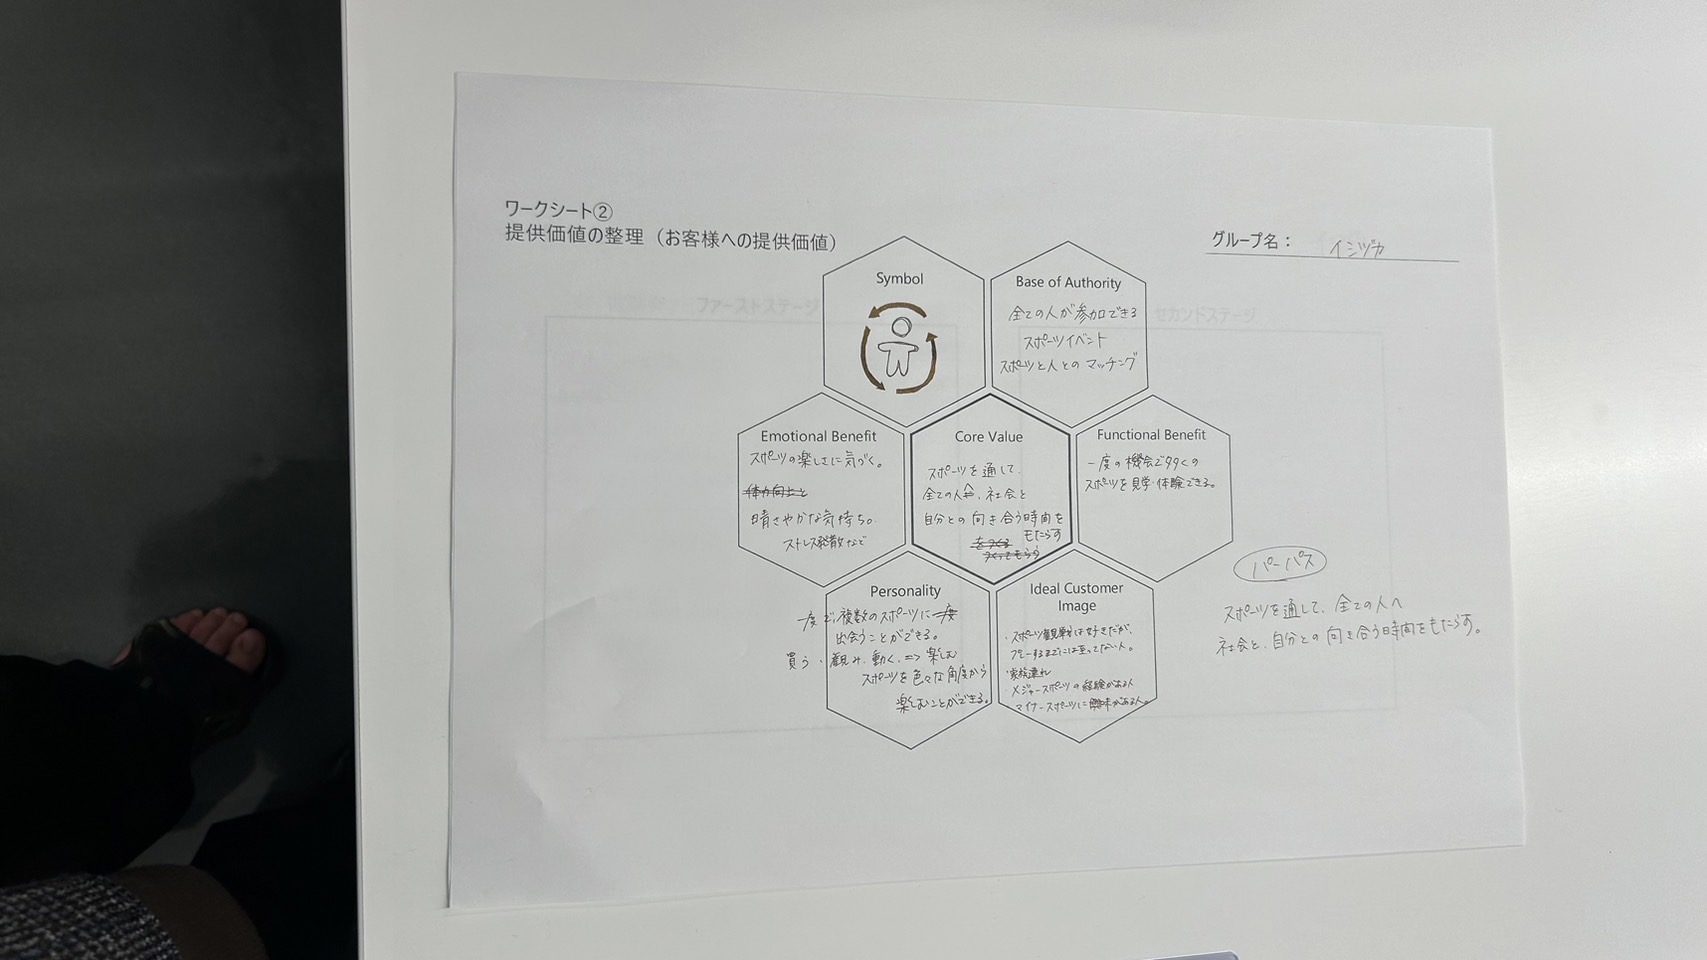 ワークシート②
提供価値の整理（お客様への提供価値）
グループ名：
イシヅカ
Symbol
Base of Authority
全ての人が参加できる
スポーツイベント
スポーツと人とのマッチング
ファーストステージ
セカンドステージ
Emotional Benefit
スポーツの楽しさに気づく。
体力向上と
晴さやかな気持ち。
ストレス発散など
Core Value
スポーツを通して、
全ての人へ、社会と
自分との向き合う時間を
もたらす
をつくる
つくってもらう
Functional Benefit
一度の機会で多くの
スポーツを見学・体験できる。
Personality
一度で、複数のスポーツに一度
出会うことができる。
買う・観み、動く、=> 楽しむ
スポーツを色々な角度から
楽しむことができる。
Ideal Customer
Image
・スポーツ観戦は好きだが、
プレーするまでには至ってない人。
・家族連れ
・メジャースポーツの経験がある人
マイナースポーツに興味がある人。
パーパス
スポーツを通して、全ての人へ
社会と、自分との向き合う時間をもたらす。